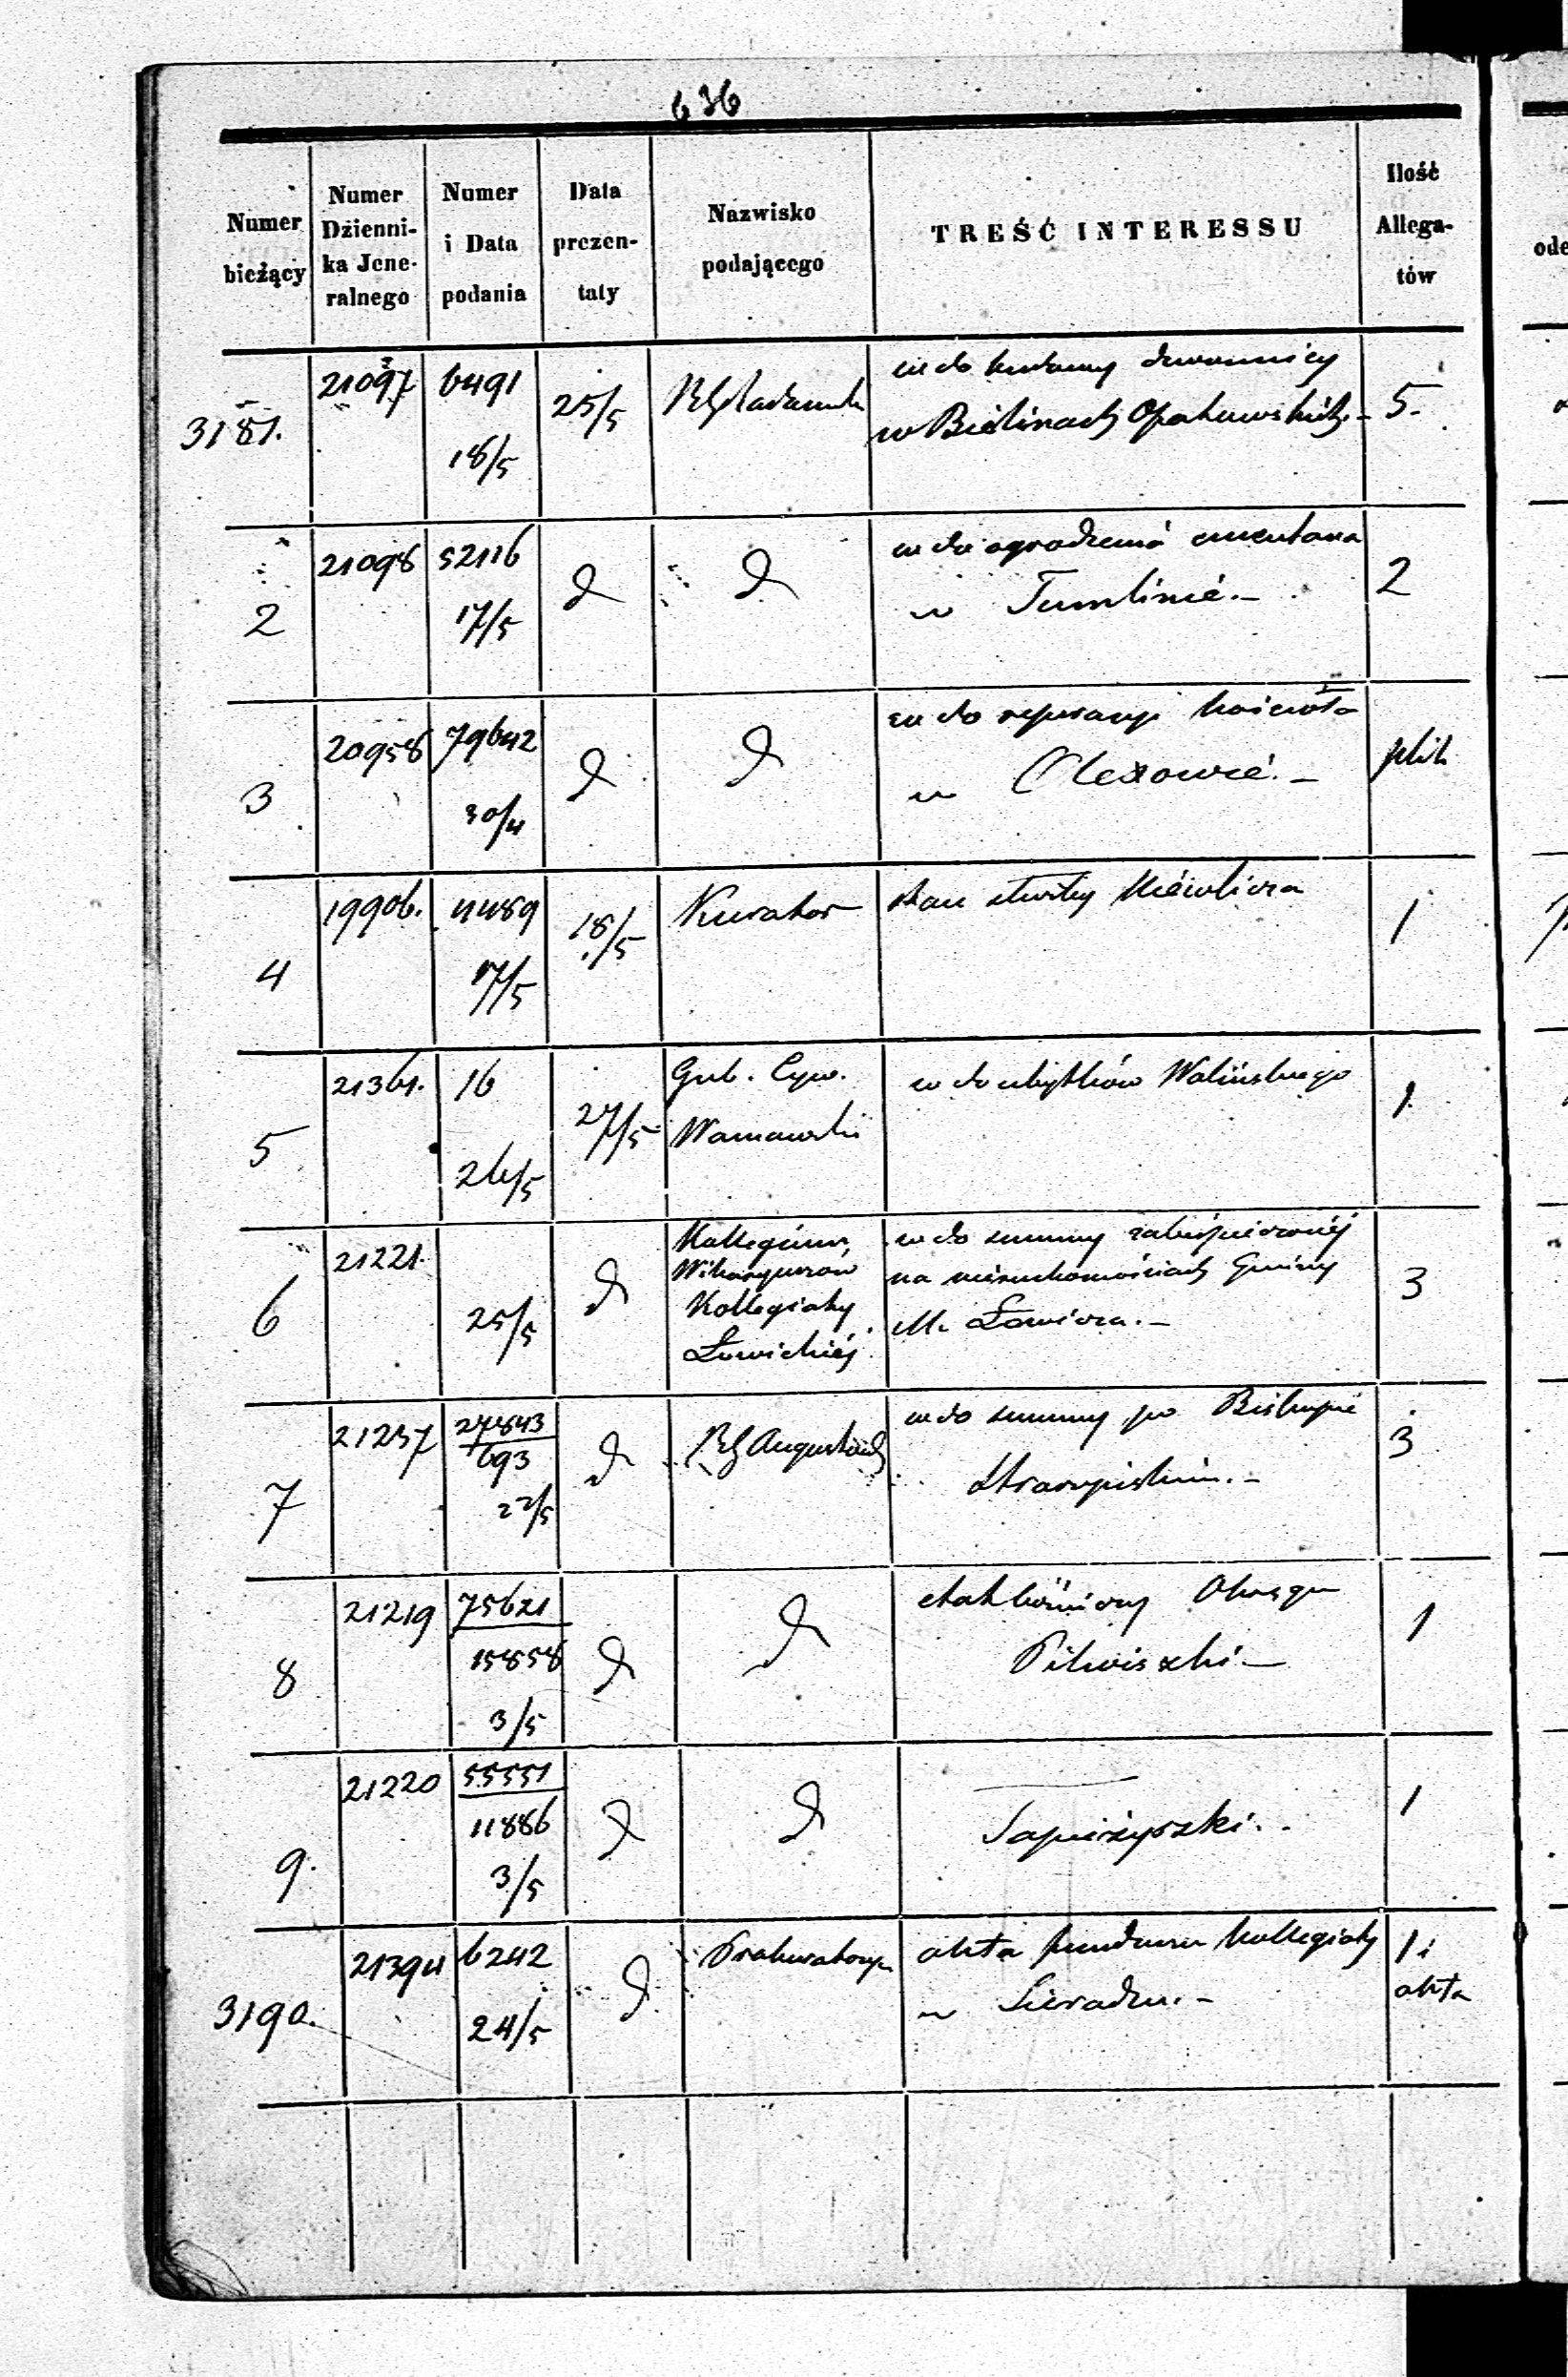 636
Numer bieżący | Numer Dzienni- ka Jene- ralnego | Numer i Data podania | Data prezen- taty | Nazwisko podającego | TREŚĆ INTERESSU | Ilość Allega- tów
3181. | 21097 | 6491 18/5 | 25/5 | RG Radomsk | w do budowy dzwonnicy
w Bielinach Opatowskich.- | 5.
2 | 21098 | 52116 17/5 | d | d | w do ogrodzenia cmentarza
w Tumlinie.- | 2
3 | 20958 | 79642 30/4 | d | d | w do reperacyi kościoła
w Olexowie.- | plik
4 | 19906. | 4489 17/5 | 18/5 | Kurator | stan służby | 1
5 | 21361. | 16 26/5 | 27/5 | Gub. Cyw.
Warszawski | w do Wolińskiego | 1.
6 | 21221. | 25/5 | d | Kollegium
Wikaryuszow
Kollegiaty
Łowickiéj | w do summy zabespieczonéj
na nieruchomościach Gminy
M. Łowicza.- | 3
7 | 21237 | 27843 693 22/5 | d | RG Augustowsk | w do summy po Biskupie
Straszyńskim.- | 3
8 | 21219 | 75621 15858 3/5 | d | d | etat bóżniczny Okręgu
Pilwiszki- | 1
9. | 21220 | 55551 11886 3/5 | d | d | Sapieżyszki. | 1
3190. | 21394 | 6242 24/5 | d | Prokuratorya | akta funduszu Kollegiaty
w Sieradzu.- | 1 i
akta